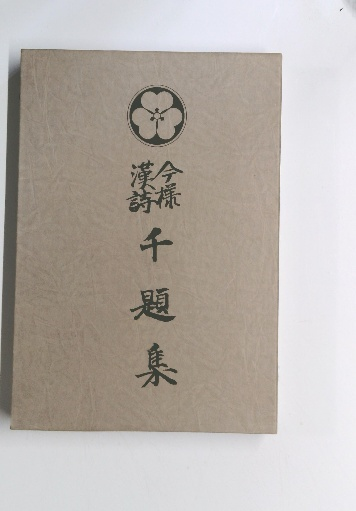 今様
漢詩
千題集